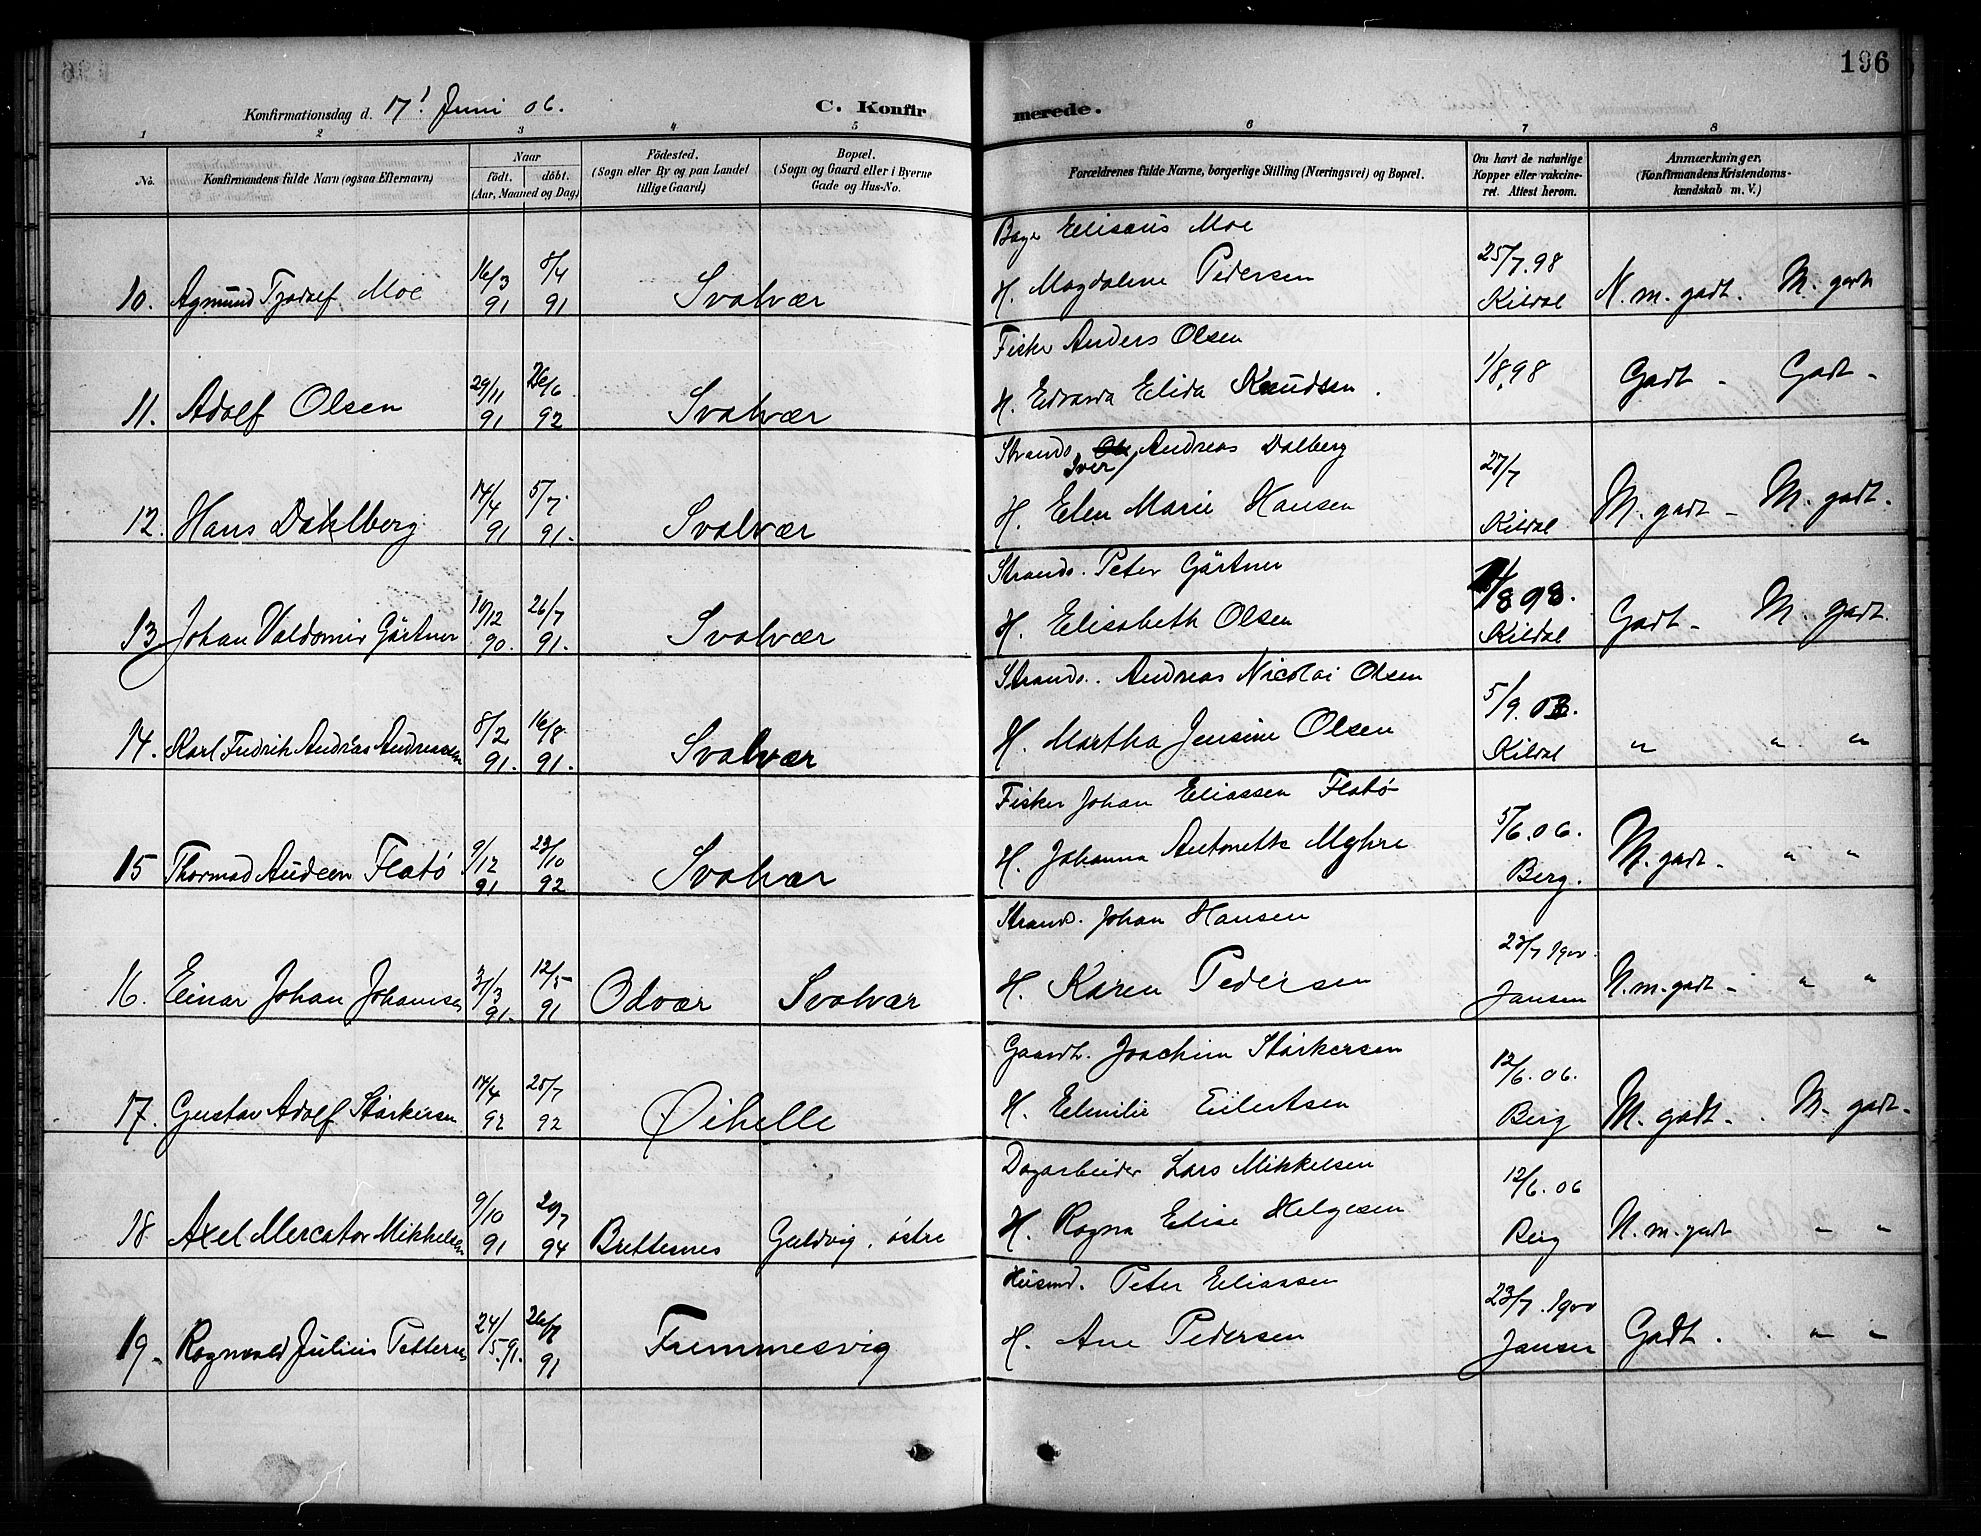 196
Konfirmationsdag d. 17! Juni 06.
C. Konfirmerede.
1 2 3 4 5 6 7 8
No.
Konfirmandens fulde Navn (ogsaa Efternavn)
Naar
födt. döbt.
(Aar, Maaned og Dag)
Födested.
(Sogn eller By og paa Landet
tillige Gaard)
Bopæl.
(Sogn og Gaard eller i Byerne
Gade og Hus-No.
Forældrenes fulde Navne, borgerlige Stilling (Næringsvei) og Bopæl.
Om havt de naturlige
Kopper eller vakcine-
ret. Attest herom.
Anmærkninger.
(Konfirmandens Kristendoms-
kendskab m. V.)
Elisæus Moe
10. Agmund Tjodolf Moe 16/3 91 5/4 91 Svolvær
H. Magdalene Pedersen 25/7.98 Kildal N. m. godt. M. godt
Fisker Anders Olsen
11. Adolf Olsen 29/11 91 26/6 92 Svolvær
H. Edvarda Elida Knudsen. 1/8.98 Godt - Godt -
Strands. Iver Andreas Dalberg
12. Hans Dahlberg 14/4 91 5/7 91. Svolvær
H. Elen Marie Hansen 27/7 Kildal M. godt - M. godt.
Strands. Peter Gärtner
13 Johan Valdemir Gärtner 10/12 90. 26/7 91. Svolvær
H. Elisabeth Olsen /8 98. Kildal Godt - M. godt.
Strands. Andreas Nicolai Olsen
14. Karl Fredrik Andreas Andreassen 8/2 91. 16/8 91. Svolvær
H. Martha Jensine Olsen 5/9. Kildal " " "
Fisker Johan Eliassen Flatö
15 Thormod Audeon Flatö 9/12 91. 23/10 92 Svolvær
H. Johanna Antonette Myhre 5/6.06. Berg. M. godt - " "
Strands. Johan Hansen
16. Einar Johan Johansen 31/3 91. 12/5 91 Odvær Svolvær
H. Karen Pedersen 23/7 1900. Jansen N. m. godt - " "
Gaardb. Joachim Störkersen
17. Gustav Adolf Störkersen 14/4 92 25/7 92 Øihelle
H. Edmilie Eilertsen 12/6.06. Berg M. godt - M. godt -
Dagarbeider Lars Mikkelsen
18 Axel Mercator Mikkelsen 9/10 91 20/7 94 Brettesnes Guldvig, östre
H. Ragna Elise Helgesen 12/6.06 Berg N. m. godt " "
Husmd. Peter Eliassen
19. Ragnvald Julius Pettersen 24/5.91. 26/7 91 Fremmesvig
H. Ane Pedersen 23/7.1900 Jansen Godt. " "